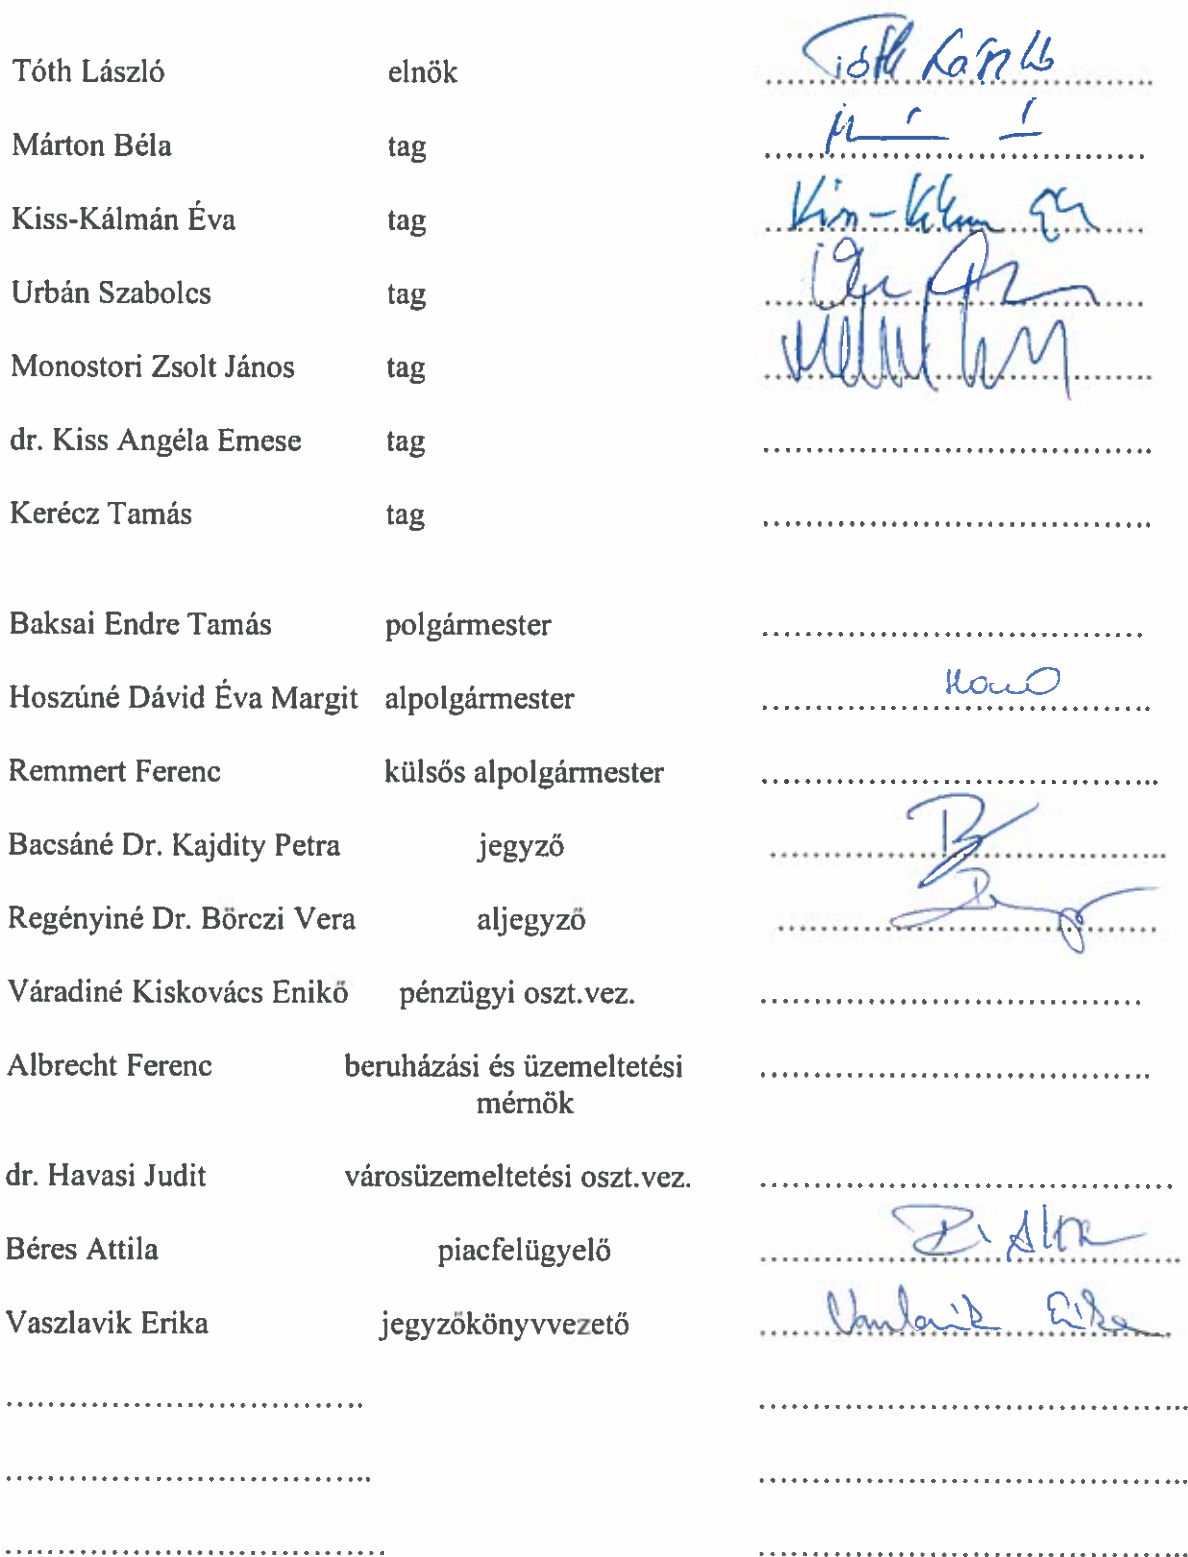 Tóth László elnök Tóth László
Márton Béla tag
Kiss-Kálmán Éva tag Kiss-Kálmán Éva
Urbán Szabolcs tag
Monostori Zsolt János tag
dr. Kiss Angéla Emese tag ..................................
Kerécz Tamás tag ..................................
Baksai Endre Tamás polgármester ..................................
Hoszúné Dávid Éva Margit alpolgármester
Remmert Ferenc külsős alpolgármester ..................................
Bacsáné Dr. Kajdity Petra jegyző
Regényiné Dr. Börczi Vera aljegyző
Váradiné Kiskovács Enikő pénzügyi oszt.vez. ..................................
Albrecht Ferenc beruházási és üzemeltetési ..................................
mérnök
dr. Havasi Judit városüzemeltetési oszt.vez. ..................................
Béres Attila piacfelügyelő
Vaszlavik Erika jegyzőkönyvvezető Vaszlavik Erika